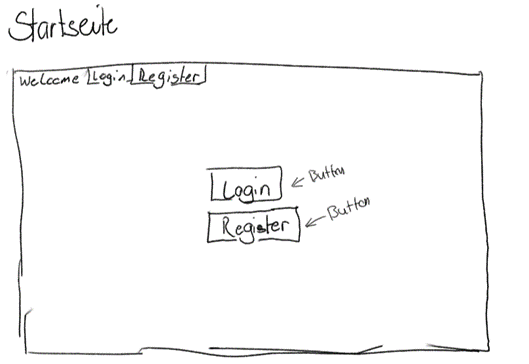 Startseite
Welcome Login Register
Login ← Button
Register ← Button